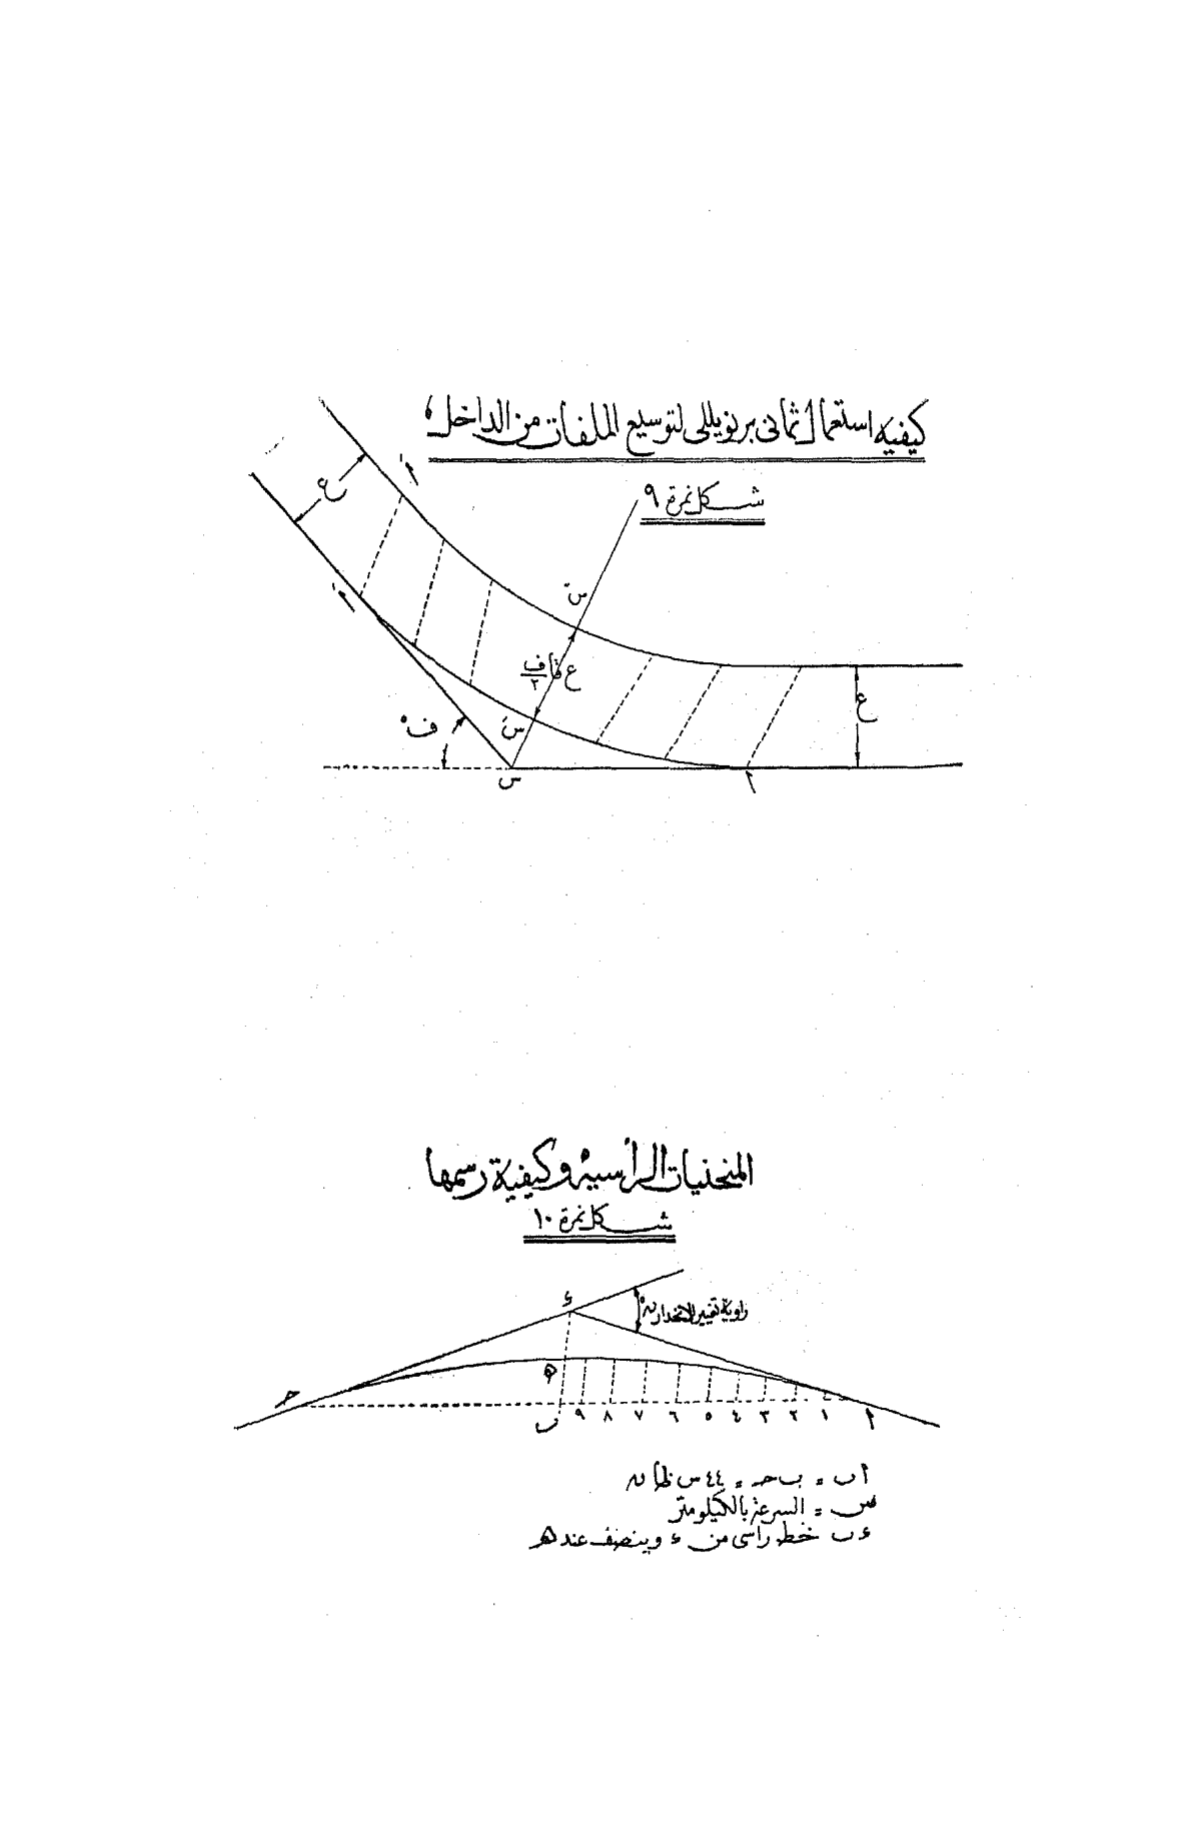 كيفية استعمال ثمانى برنويللى لتوسيع الملفات من الداخل
شكل نمرة ٩
ع
أَ
أَ
سً
ع قا ف/٢
سَ
ع
ف°
س
أ
المنحنيات الرأسية وكيفية رسمها
شكل نمرة ١٠
ء
زاوية تغيير الانحدار ن°
ه
ح
ب ٩ ٨ ٧ ٦ ٥ ٤ ٣ ٢ ١ أ
أ ب = ب ح = ٤٤ س ظا ن
س = السرعة بالكيلومتر
ء ب خط رأسى من ء وينصف عند ه